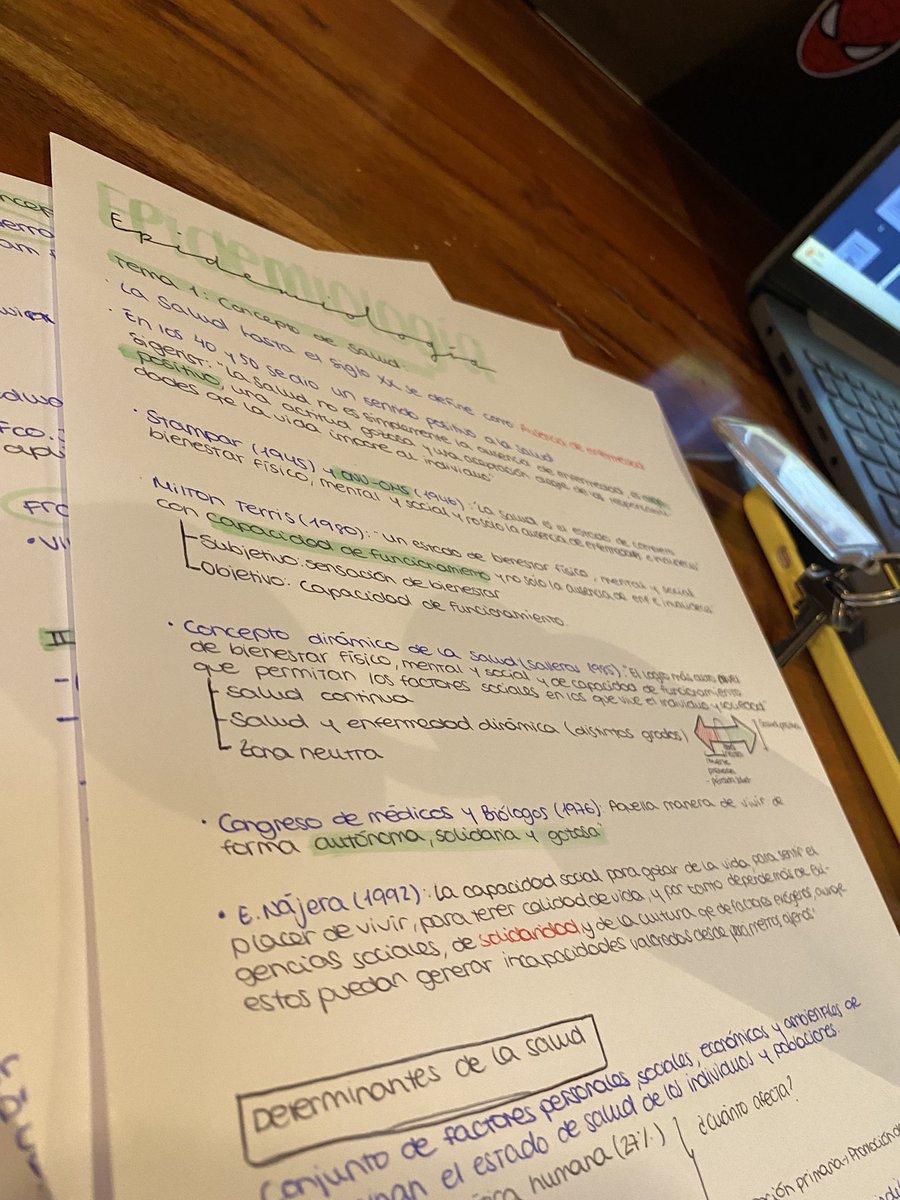 Epidemiología
Epidemiología
Tema 1: Concepto de salud.
· La Salud hasta el siglo XX se define como Ausencia de enfermedad
· En los 40 y 50 se dio un sentido positivo a la salud
Sigerist: "La salud no es simplemente la ausencia de enfermedad, es algo
positivo, una actitud gozosa y una aceptación alegre de las responsabili
dades que la vida impone al individuo"
· Stampar (1945) y ONU-OMS (1946): "La salud es el estado de completo
bienestar físico, mental y social y no solo la ausencia de enfermedades e invalideces"
· Milton Terris (1980): "un estado de bienestar físico, mental y social
con capacidad de funcionamiento y no solo la ausencia de enf e invalidez"
Subjetivo: sensación de bienestar
Objetivo: capacidad de funcionamiento.
· Concepto dinámico de la salud (Salleras 1985): "El logro más alto nivel
de bienestar físico, mental y social y de capacidad de funcionamiento
que permitan los factores sociales en los que vive el individuo y sociedad"
- Salud continua
- Salud y enfermedad dinámica (distintos grados)
Zona neutra
muerte
· Congreso de médicos y Biólogos (1976): Aquella manera de vivir de
forma autónoma, solidaria y gozosa"
· E. Nájera (1992): La capacidad social para gozar de la vida, para sentir el
placer de vivir, para tener calidad de vida, y por tanto depende más de Exi-
gencias sociales, de solidaridad y de la cultura que de factores exógenos, aunque
estos puedan generar incapacidades valoradas desde parámetros ajenos"
Determinantes de la salud
Conjunto de factores personales, sociales, económicos y ambientales
el estado de salud de los individuos y poblaciones.
humana (27%)
¿Cuánto afecta?
primaria → Promoción